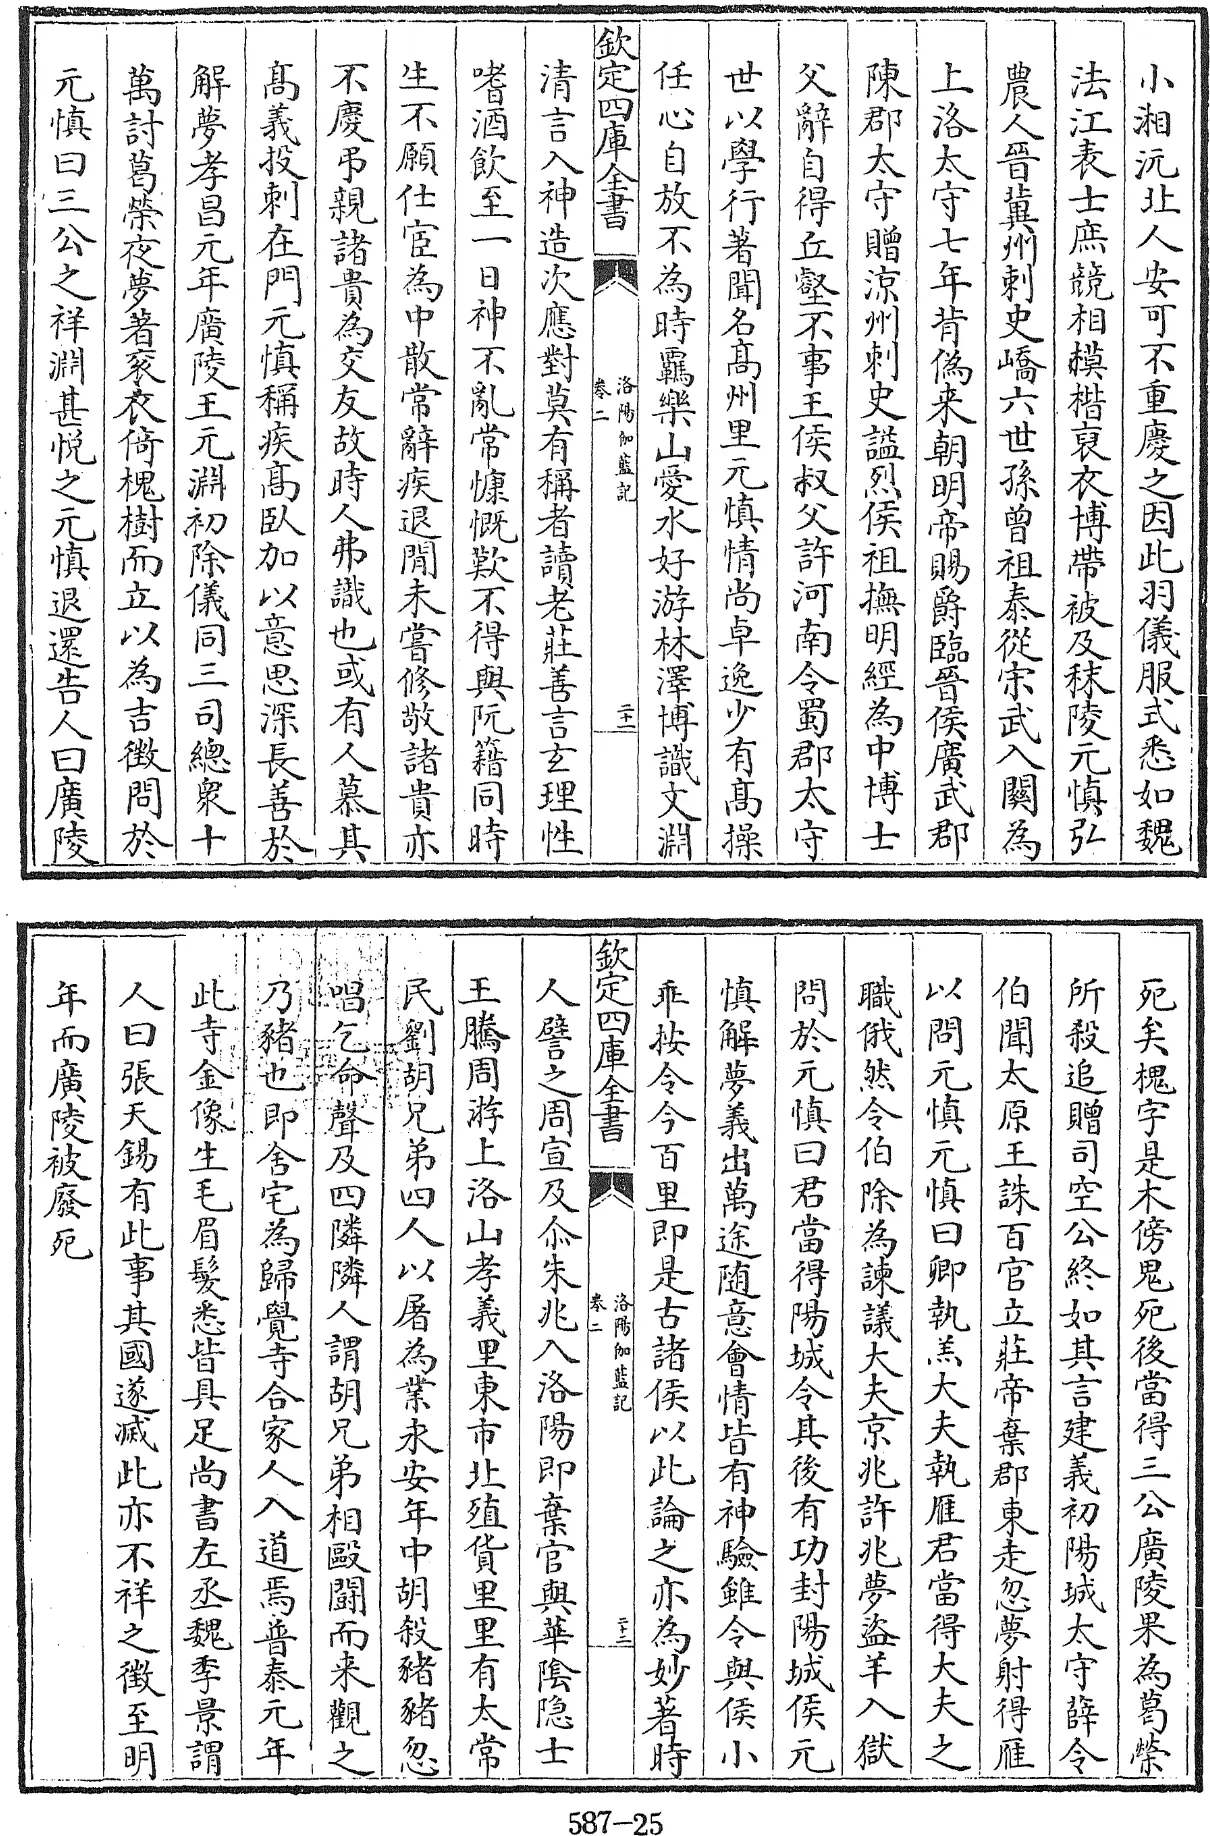 小湘沅北人安可不重慶之因此羽儀服式悉如魏
法江表士庶競相模楷裒衣博帶被及秣陵元慎弘
農人晉冀州刺史嶠六世孫曾祖泰從宋武入關為
上洛太守七年背偽来朝明帝賜爵臨晉侯廣武郡
陳郡太守贈凉州刺史謚烈侯祖撫明經為中博士
父辭自得丘壑不事王侯叔父許河南令蜀郡太守
世以學行著聞名髙州里元慎情尚卓逸少有髙操
任心自放不為時羈樂山愛水好游林澤博識文淵
欽定四庫全書
洛陽伽藍記
卷二
二十一
清言入神造次應對莫有稱者讀老莊善言玄理性
嗜酒飲至一日神不亂常慷慨歎不得與阮籍同時
生不願仕宦為中散常辭疾退閒未嘗修敬諸貴亦
不慶弔親諸貴為交友故時人弗識也或有人慕其
髙義投刺在門元慎稱疾髙臥加以意思深長善於
解夢孝昌元年廣陵王元淵初除儀同三司總衆十
萬討葛榮夜夢著衮衣倚槐樹而立以為吉徵問於
元慎曰三公之祥淵甚悅之元慎退還告人曰廣陵
死矣槐字是木傍鬼死後當得三公廣陵果為葛榮
所殺追贈司空公終如其言建義初陽城太守薛令
伯聞太原王誅百官立莊帝棄郡東走忽夢射得雁
以問元慎元慎曰卿執羔大夫執雁君當得大夫之
職俄然令伯除為諫議大夫京兆許兆夢盜羊入獄
問於元慎曰君當得陽城令其後有功封陽城侯元
慎解夢義出萬途随意會情皆有神驗雖令與侯小
乖按令今百里即是古諸侯以此論之亦為妙著時
欽定四庫全書
洛陽伽藍記
卷二
二十二
人譬之周宣及尒朱兆入洛陽即棄官與華陰隐士
王騰周游上洛山孝義里東市北殖貨里里有太常
民劉胡兄弟四人以屠為業永安年中胡殺豬豬忽
唱乞命聲及四隣隣人謂胡兄弟相毆鬪而来觀之
乃豬也即舍宅為歸覺寺合家人入道焉普泰元年
此寺金像生毛眉髮悉皆具足尚書左丞魏季景謂
人曰張天錫有此事其國遂滅此亦不祥之徵至明
年而廣陵被廢死
587-25